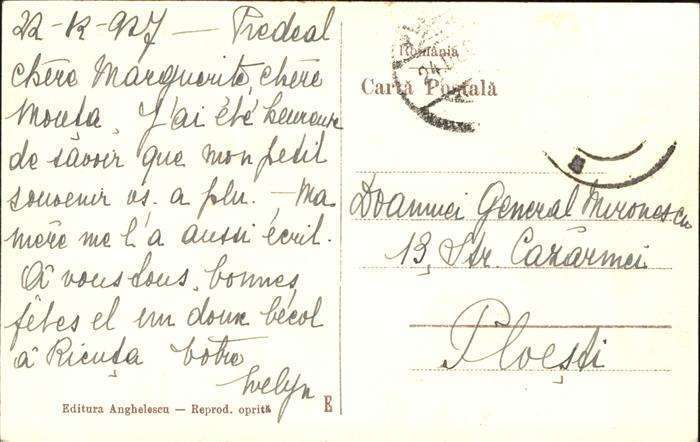 22-12-927 — Predeal
chère Marguerite, chère
Mouta, J'ai été heureuse
de savoir que mon petit
souvenir vs. a plu. — Ma
mère me l'a aussi écrit.
À vous tous, bonnes
fêtes et un doux bécot
à Ricuța Votre
Evelyn
Editura Anghelescu — Reprod. oprită E
România
Cartă Poștală
24
Doamnei General Mironescu
13, Str. Cazărmei
Ploești